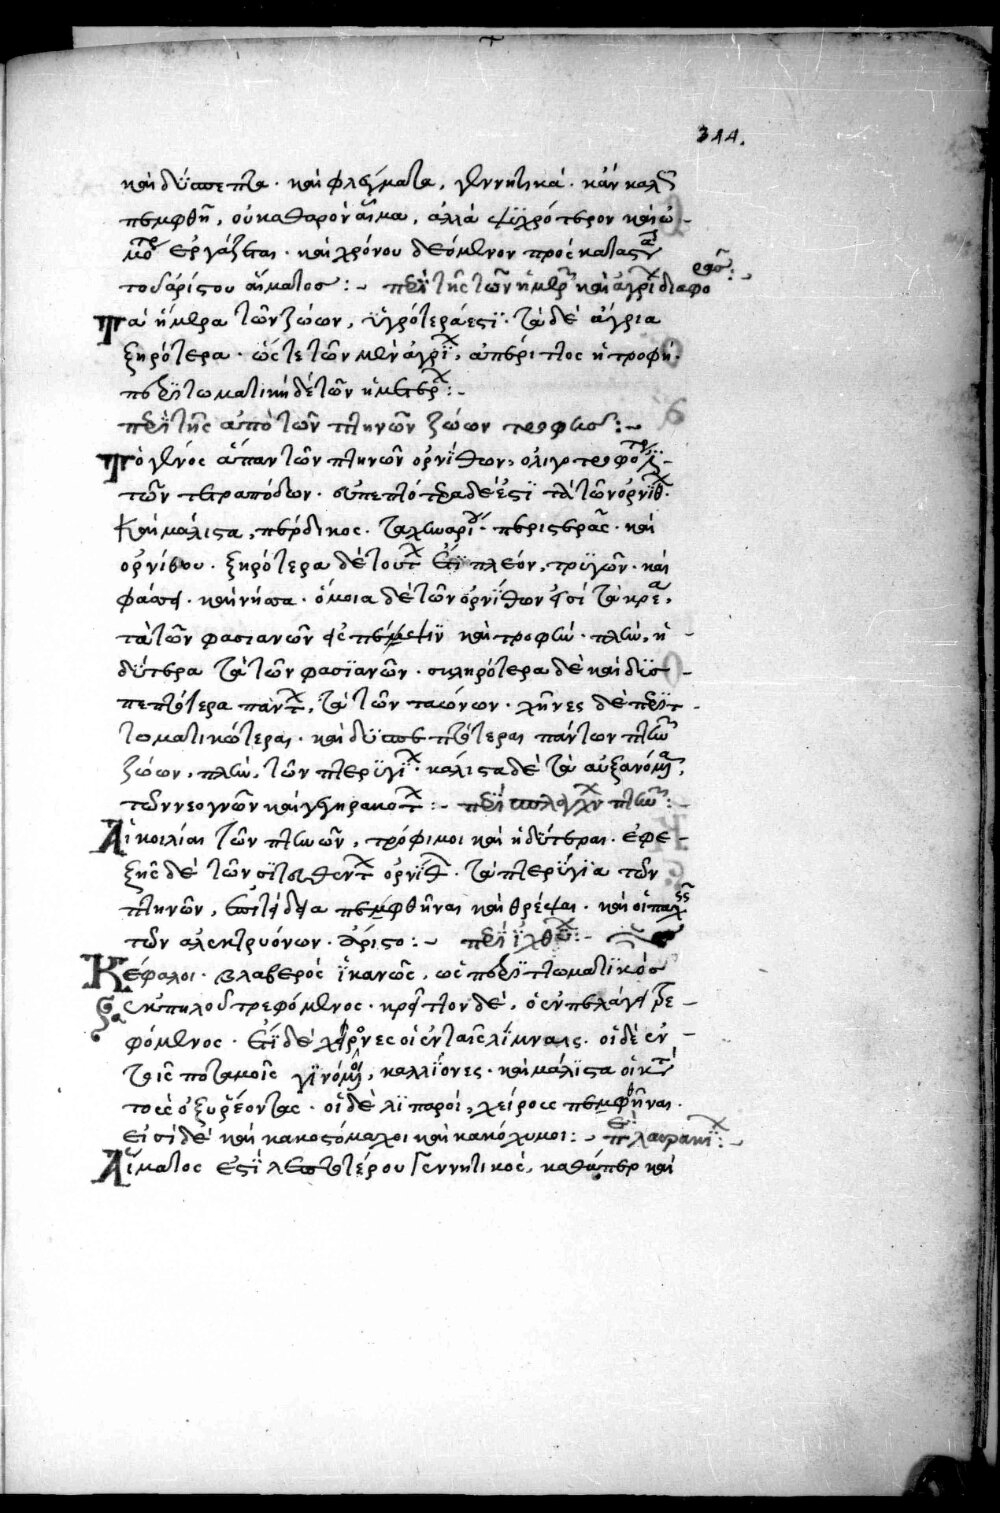 344.
καὶ δύσπεπτα · καὶ φλέγματα, γεννητικά · κἂν καλῶς
πεμφθῆ, οὐ καθαρὸν αἷμα, ἀλλὰ ψυχρότερον καὶ ὠ-
μότερον ἐργάζεται · καὶ χρόνου δεόμενον πρὸς κατάστασιν
τοῦ ἀρίστου αἵματος :- περὶ τῆς τῶν ἡμέρων καὶ ἀγρίων διαφορᾶς :-
Τὰ ἥμερα τῶν ζώων, ὑγρότερά ἐστι · τὰ δὲ ἄγρια
ξηρότερα · ὥστε τῶν μὲν ἀγρίων, ἀπέριττος ἡ τροφή ·
περιττωματικὴ δὲ τῶν ἡμετέρων :-
περὶ τῆς ἀπὸ τῶν πτηνῶν ζώων τροφῆς :-
Τὸ γένος ἁπάντων πτηνῶν ὀρνίθων, ὀλιγοτροφότερον
τῶν τετραπόδων · εὐπεπτότερα δέ ἐστι τὰ τῶν ὀρνίθων ·
καὶ μάλιστα, πέρδικος · ταγηναρίου · περιστερᾶς · καὶ
ὀρνίθου · ξηρότερα δὲ τούτων ἔτι πλέον, τρυγῶν · καὶ
φάσσα · καὶ νῆσσα · ὅμοια δὲ τῶν ὀρνίθων εἰσὶ τὰ κρέα,
τὰ τῶν φασιανῶν εἰς πέψιν καὶ τροφήν · πλὴν, ἡ-
δύτερα τὰ τῶν φασιανῶν · σκληρότερα δὲ καὶ δυσ-
πεπτότερα πάντων, τὰ τῶν ταώνων · χῆνες δὲ περιτ-
τωματικώτεραι · καὶ δυσπεπτότεραι πάντων πτηνῶν
ζώων, πλὴν, τῶν πτερυγίων · κάλιστα δὲ τὰ αὐξανόμενα,
τῶν νεογνῶν καὶ γεγηρακότων :- περὶ σπλάγχνων πτηνῶν :-
Αἱ κοιλίαι τῶν πτηνῶν, τρόφιμοι καὶ ἡδύτεραι · ἐφε-
ξῆς δὲ τῶν σιτισθέντων ὀρνίθων · τὰ πτερύγια τῶν
πτηνῶν, ἐπιτήδεια πεμφθῆναι καὶ θρέψαι · καὶ οἱ παχεῖς
τῶν ἀλεκτρυόνων · ἄριστοι :- περὶ ἰχθύων :-
Κέφαλοι · βλαβερὸς ἱκανῶς, ὡς περιττωματικὸς
ἐκ πηλοῦ τρεφόμενος · κρεῖττον δὲ, ὁ ἐν πελάγει τρε-
φόμενος · ἔτι δὲ χείρονες οἱ ἐν ταῖς λίμναις · οἱ δὲ ἐν
τοῖς ποταμοῖς γινόμενοι, καλλίονες · καὶ μάλιστα οἱ κατὰ
τοὺς ὀξυρέοντας · οἱ δὲ λιπαροὶ, χείρους πεμφθῆναι ·
εἰσὶ δὲ καὶ κακοστόμαχοι καὶ κακόχυμοι :- περὶ λαυρακίων :-
Αἵματος ἐστὶ λεπτοτέρου γεννητικὸς, καθάπερ καὶ